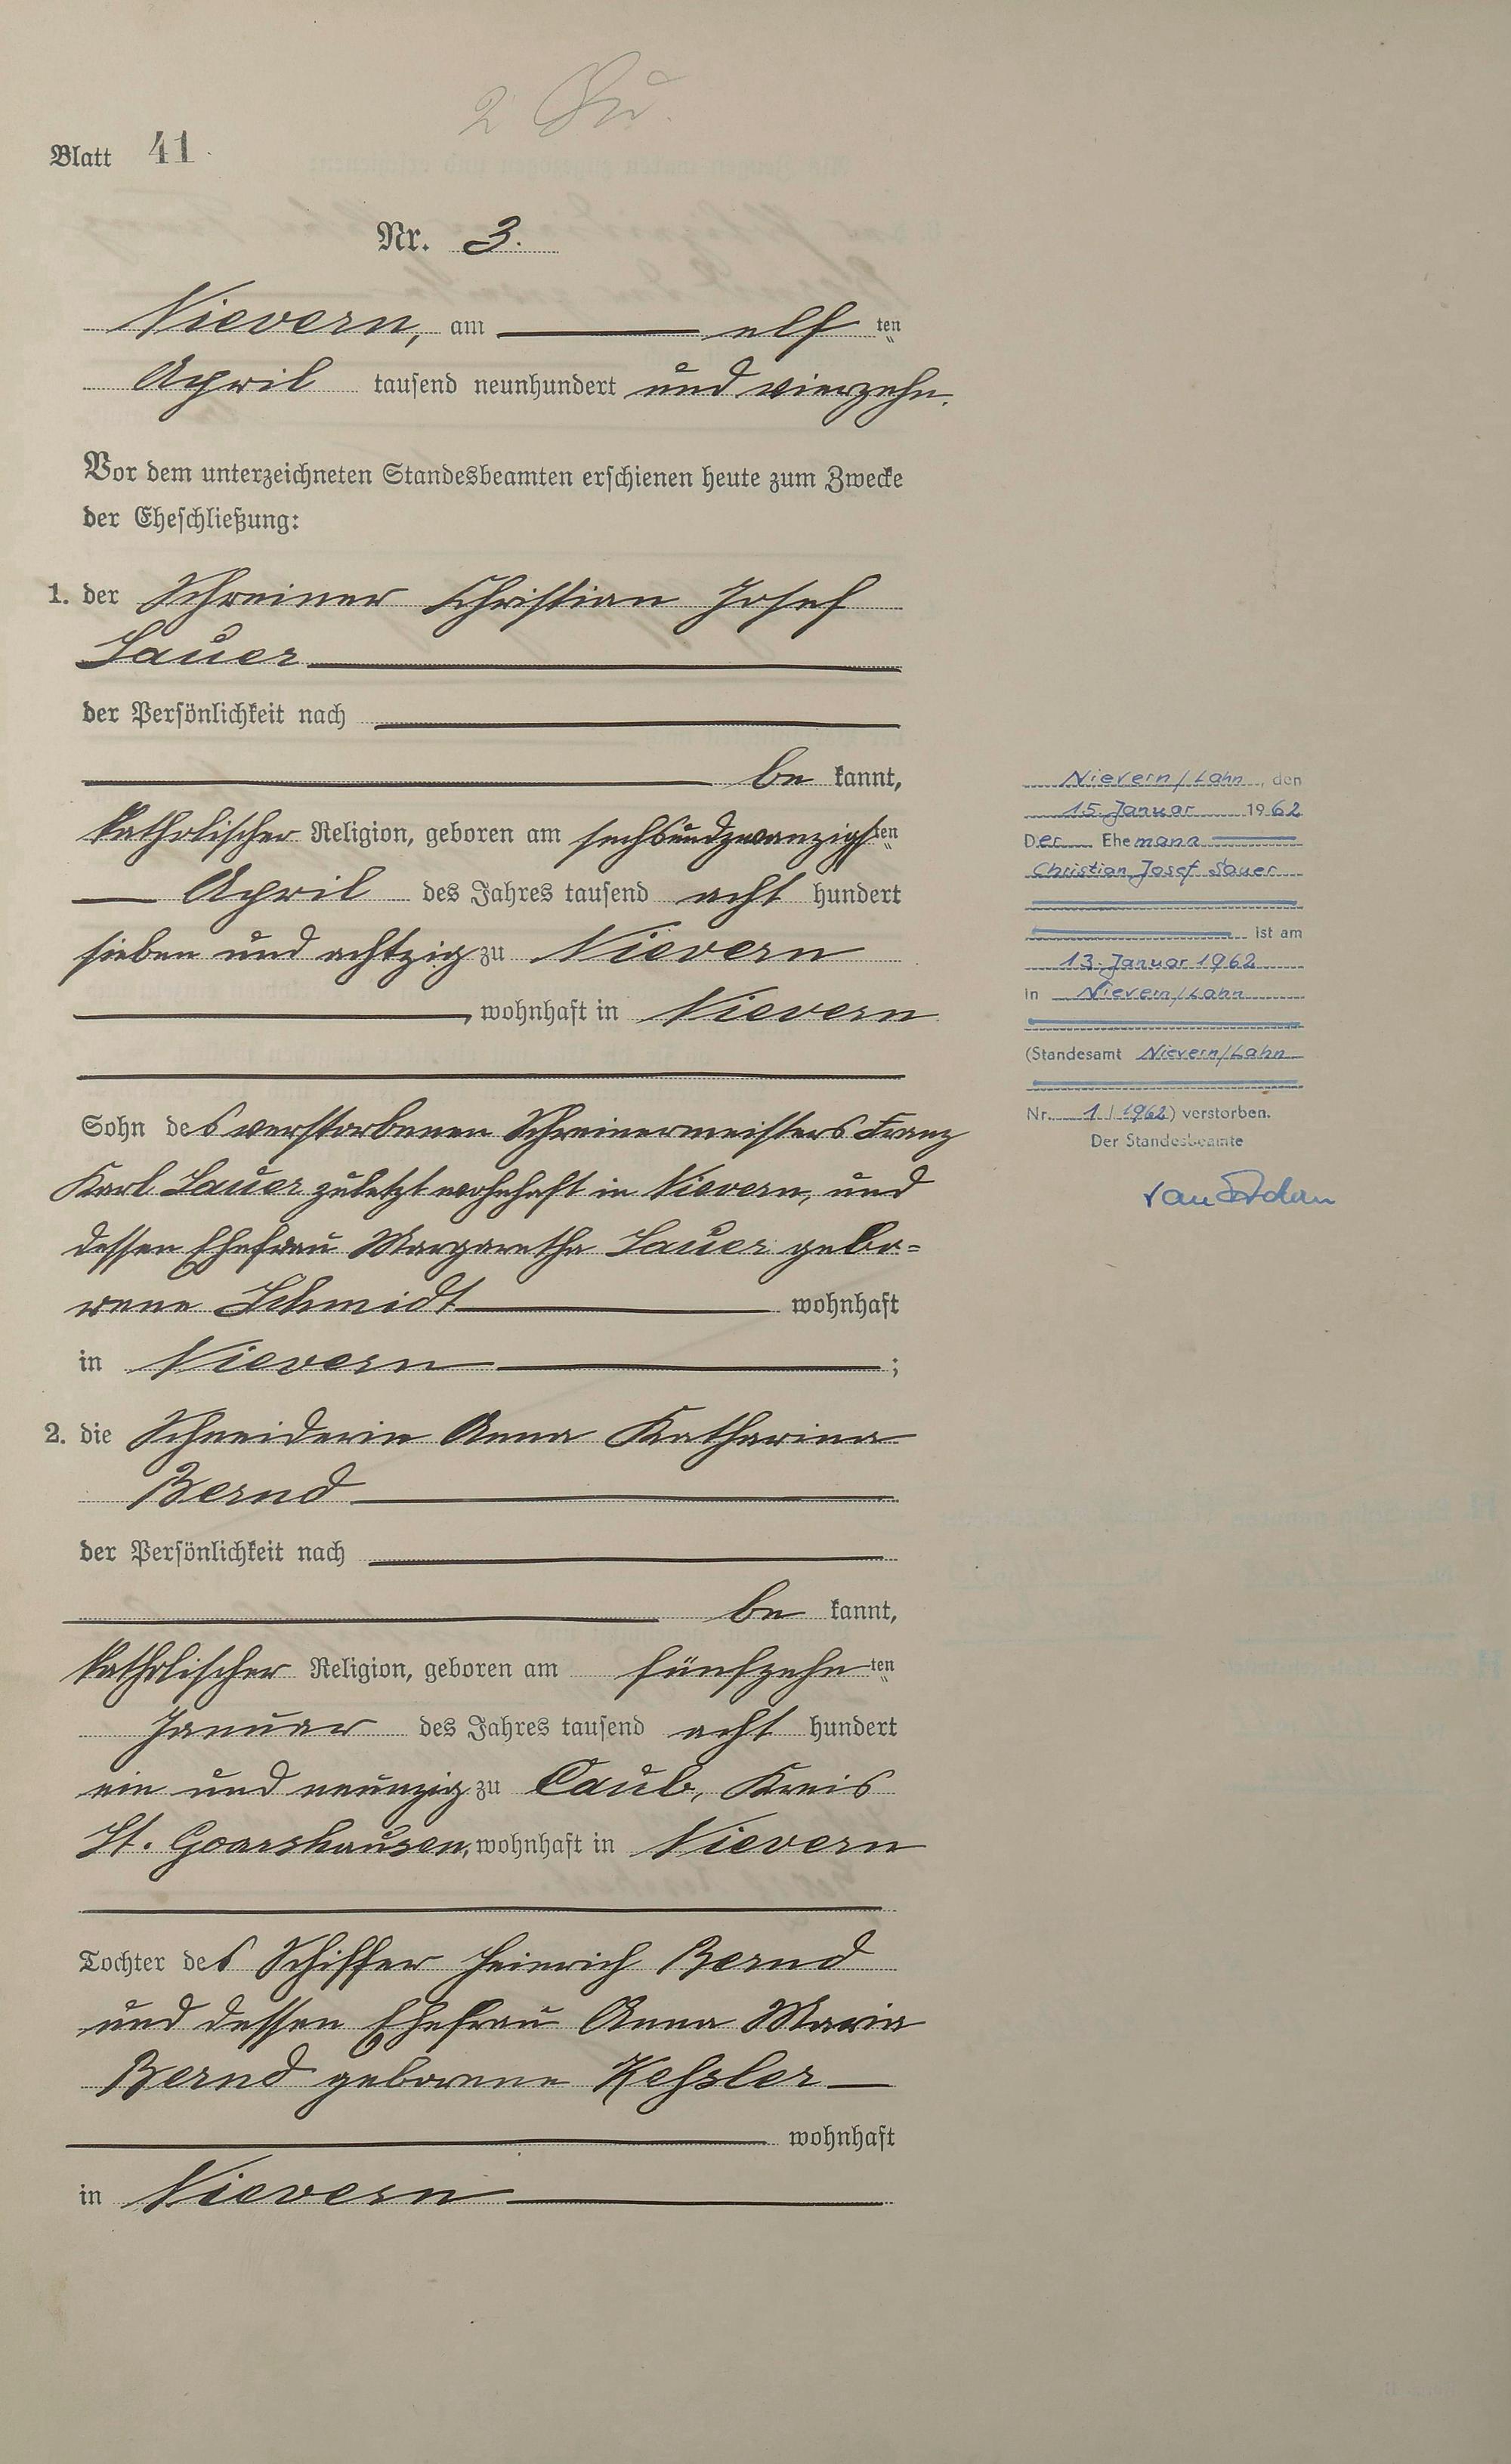 Blatt 41.
Nr. 3.
Nievern, am elf ten
April tausend neunhundert und vierzehn.
Vor dem unterzeichneten Standesbeamten erschienen heute zum Zwecke
der Eheschließung:
1. der Schreiner Christian Josef
Sauer
der Persönlichkeit nach
be kannt,
katholischer Religion, geboren am sechsundzwanzigsten
April des Jahres tausend acht hundert
sieben und achtzig zu Nievern
, wohnhaft in Nievern
Sohn des verstorbenen Schreinermeisters Franz
Karl Sauer zuletzt wohnhaft in Nievern, und
dessen Ehefrau Margaretha Sauer gebo=
rene Schmidt wohnhaft
in Nievern ;
2. die Schneiderin Anna Katharina
Bernd
der Persönlichkeit nach
be kannt,
katholischer Religion, geboren am fünfzehn ten
Januar des Jahres tausend acht hundert
ein und neunzig zu Caub, Kreis
St. Goarshausen, wohnhaft in Nievern
Tochter des Schiffer Heinrich Bernd
und dessen Ehefrau Anna Maria
Bernd geborene Keßler
wohnhaft
in Nievern
Nievern/Lahn, den
15. Januar 1962
Der Ehemann
Christian Josef Sauer
ist am
13. Januar 1962
in Nievern/Lahn
(Standesamt Nievern/Lahn
Nr. 1/1962) verstorben.
Der Standesbeamte